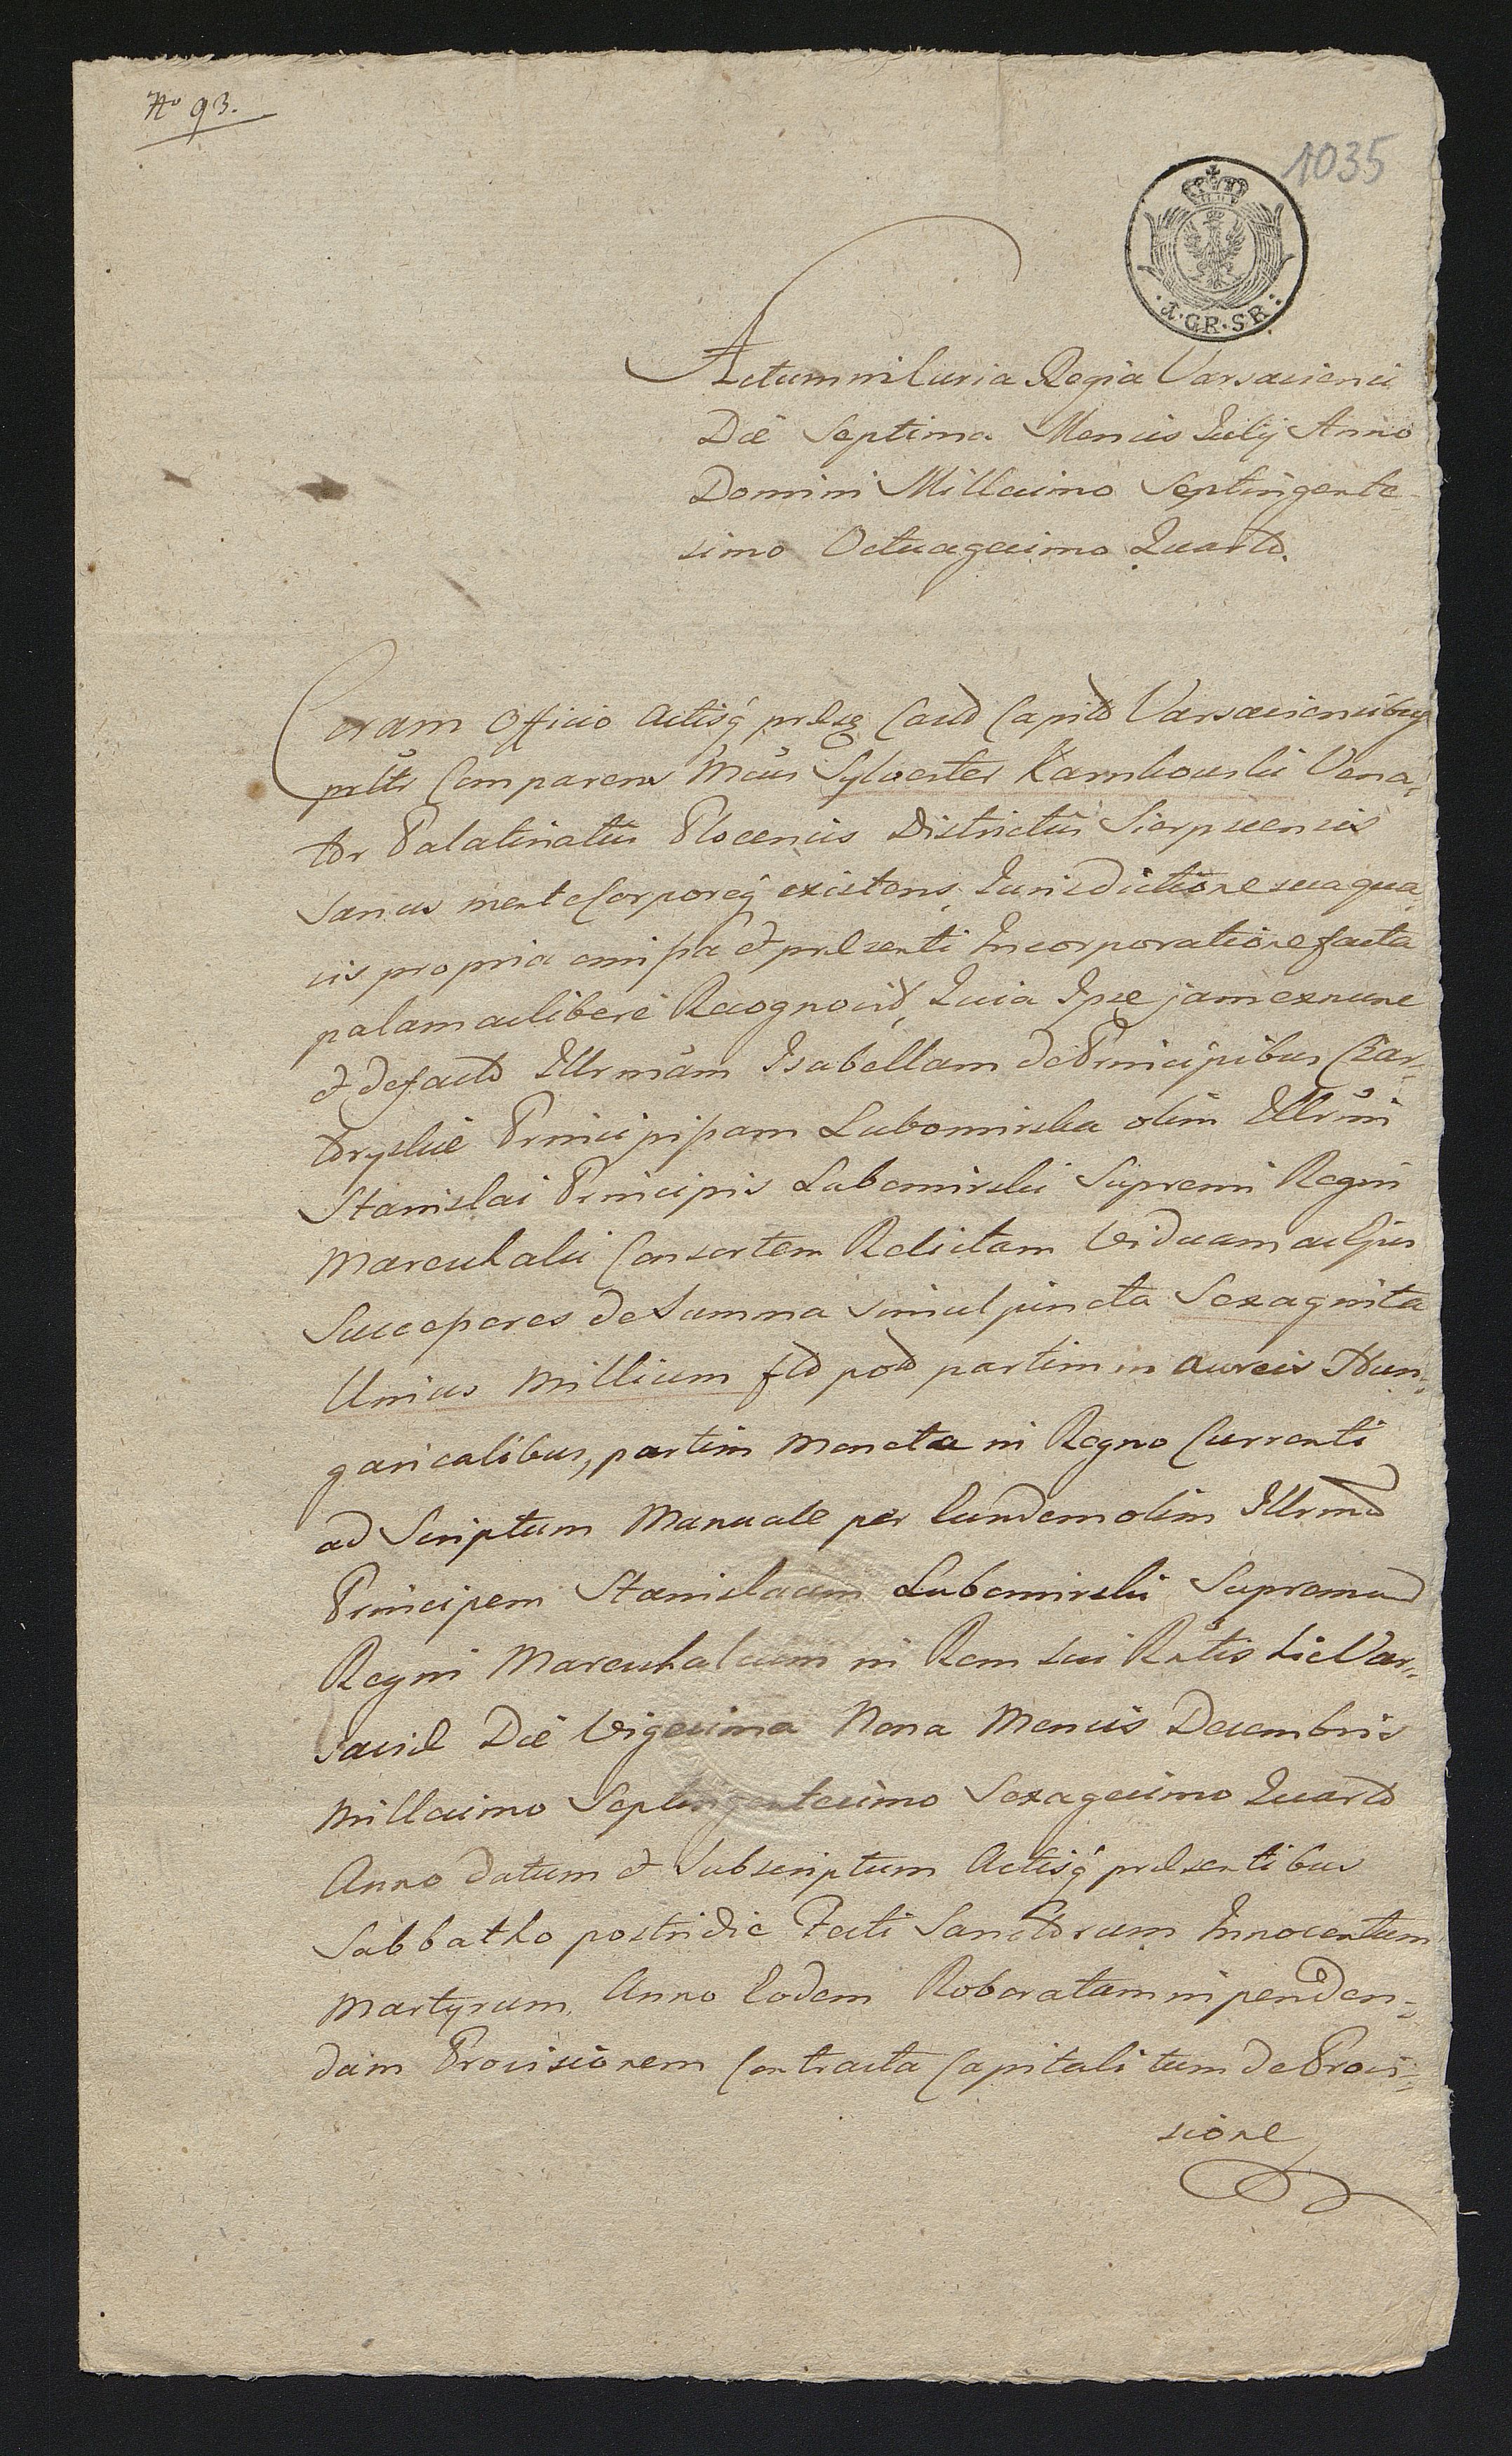 No 93.
1035
1.GR.S.R.
Actum in Curia Regia Varsaviensi
Die Septima Mensis Julij Anno
Domini Millesimo Septingente-
simo Octuagesimo Quarto.
Coram Officio Actisq prsbq Castr Capitl Varsaviensibus
prltr Comparens Mcus Sylvester Karnkowski Vena-
tor Palatinatus Plocensis Districtus Sierpscensis
Sanus mente Corporeq existens, Jurisdictione sua qua-
vis propria omissa et praesenti Incorporatione facta
palam ac libere Recognovit, Quia Ipse jam ex nunc
et de facto Illrmam Isabellam de Principibus Czar-
toryskie Principissam Lubomirska olim Illrmi
Stanislai Principis Lubomirski Supremi Regni
Mareschalci Consortem Relictam Viduam ac Ejus
Successores de Summa simul juncta Sexaginta
Unius Millium fld pol partim in Aureis Hun-
garicalibus, partim Moneta in Regno Currenti
ad Scriptum Manuale per Eundem olim Illrmd
Principem Stanislaum Lubomirski Supremum
Regni Mareschalcum in Rem sui Rntis hic Var-
saviae Die Vigesima Nona Mensis Decembris
Millesimo Septingentesimo Sexagesimo Quarto
Anno datum et Subscriptum Actisq praesentibus
Sabbatho postridie Festi Sanctorum Innocentum
Martyrum, Anno Eodem Roboratum in penden-
dam Provisionem Contracta Capitali tum de Provi-
sione